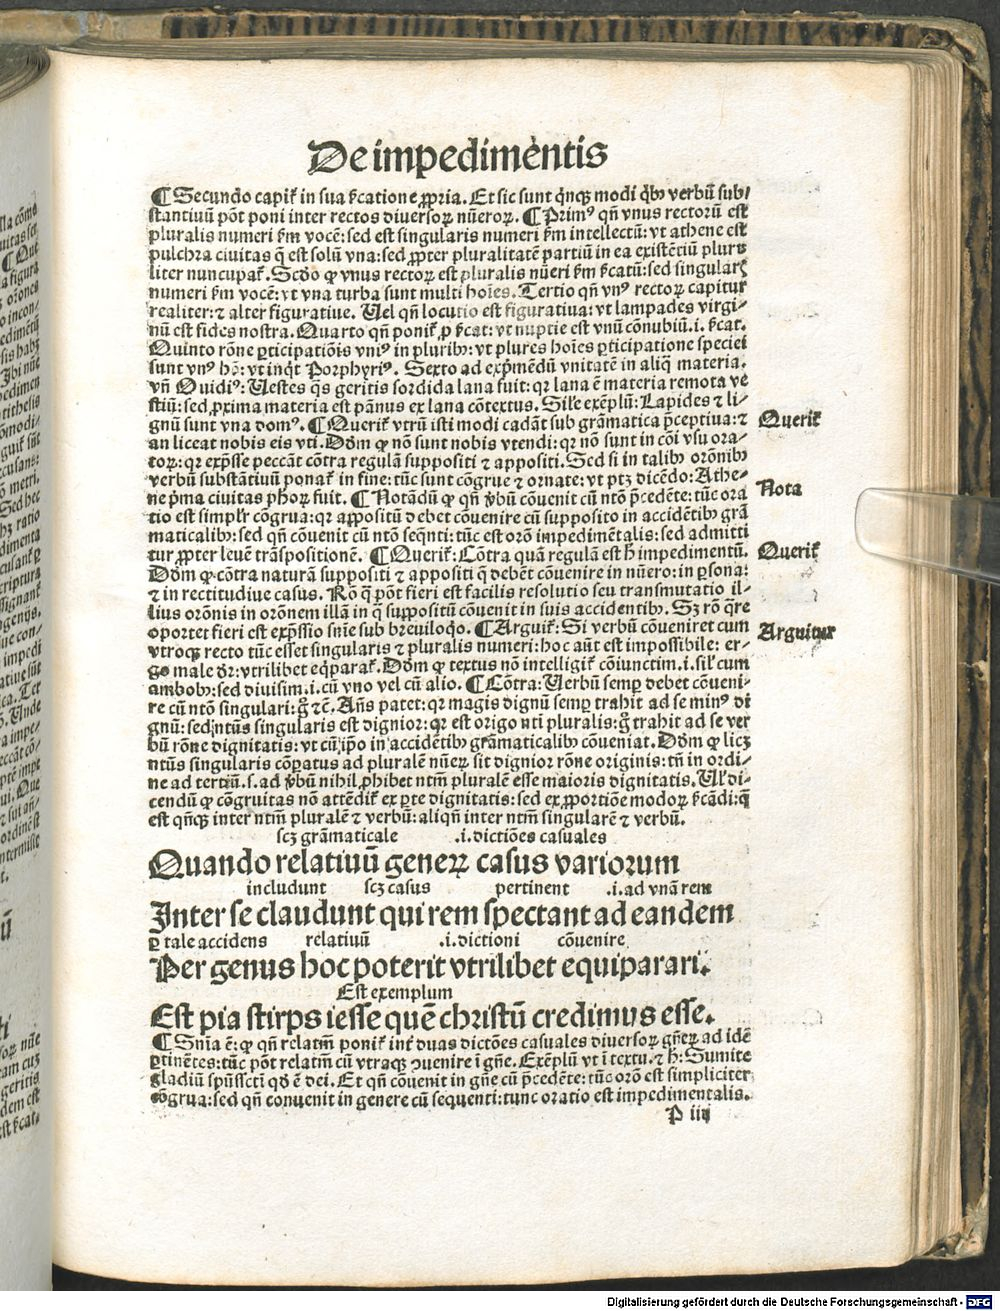 De impedimētis
¶ Secundo capiť in sua ẜcatione ꝓpria. Et sic sunt qͥnqꝫ modi qͥbꝰ verbū sub⸗
stantiuū pōt poni inter rectos diuersoꝝ nūeroꝝ. ¶ Primꝰ qn̄ vnus rectorū est
pluralis numeri ẜm vocē: sed est singularis numeri ẜm intellectū: vt athene est
pulchra ciuitas q̄ est solū vna: sed ꝓpter pluralitatē partiū in ea existētiū plura
liter nuncupať. Scďo ꝙ vnus rectoꝝ est pluralis nūeri ẜm ẜcatū: sed singularꝭ
numeri ẜm vocē: vt vna turba sunt multi hoīes. Tertio qn̄ vnꝰ rectoꝝ capitur
realiter: ⁊ alter figuratiue. Uel qn̄ locutio est figuratiua: vt lampades virgi⸗
nū est fides nostra. Quarto qn̄ poniť ꝓ ẜcat: vt nuptie est vnū cōnubiū .i. ẜcat.
Quinto rōne ꝑticipatiōis vniꝰ in pluribꝰ: vt plures hoīes ꝑticipatione speciei
sunt vnꝰ hō: vt inqͥt Porphyriꝰ. Sexto ad exp̄mēdū vnitatē in aliq̄ materia.
vn̄ Ouidiꝰ: Uestes qͣs geritis sordida lana fuit: qꝛ lana ē materia remota ve
stiū: sed ꝓxima materia est pānus ex lana cōtextus. Sile exēplū: Lapides ⁊ li⸗
gnū sunt vna domꝰ. ¶ Queriť vtrū isti modi cadāt sub grāmatica p̄ceptiua: ⁊
an liceat nobis eis vti. Dōm ꝙ nō sunt nobis vtendi: qꝛ nō sunt in cōi vsu ora⸗
toꝝ: qꝛ exp̄sse peccāt cōtra regulā suppositi ⁊ appositi. Sed si in talibꝰ orōnibꝰ
verbū substātiuū ponať in fine: tūc sunt cōgrue ⁊ ornate: vt ptꝫ dicēdo: Athe⸗
ne p̄ma ciuitas phoꝝ fuit. ¶ Notādū ꝙ qn̄ v̄bū cōuenit cū ntō p̄cedēte: tūc ora
tio est simplʼr cōgrua: qꝛ appositū debet cōuenire cū supposito in accidētibꝰ grā
maticalibꝰ: sed qn̄ cōuenit cū ntō seqn̄ti: tūc est orō impedimētalis: sed admitti
tur ꝓpter leuē trāspositionē. ¶ Queriť: Cōtra quā regulā est ħ impedimentū.
Dōm ꝙ cōtra naturā suppositi ⁊ appositi q̄ debēt cōuenire in nūero: in ꝑsona:
⁊ in rectitudine casus. Rō qͣ pōt fieri est facilis resolutio seu transmutatio il⸗
lius orōnis in orōnem illā in qͣ suppositū cōuenit in suis accidentibꝰ. Sꝫ rō qͣre
oportet fieri est exp̄ssio snīe sub breuiloqͦ. ¶ Arguiť: Si verbū cōueniret cum
vtroqꝫ recto tūc esset singularis ⁊ pluralis numeri: hoc aūt est impossibile: er⸗
go male dr̄: vtrilibet eqͥparať. Dōm ꝙ textus nō intelligiť cōiunctim .i. silʼ cum
ambobꝰ: sed diuisim .i. cū vno vel cū alio. ¶ Cōtra: Uerbū semꝑ debet cōueni⸗
re cū ntō singulari: g̊ ⁊ċ. Añs patet: qꝛ magis dignū semꝑ trahit ad se minꝰ di
gnū: sed ntūs singularis est dignior: qꝛ est origo nti pluralis: g̊ trahit ad se ver
bū rōne dignitatis: vt cū ip̄o in accidētibꝰ grāmaticalibꝰ cōueniat. Dōm ꝙ licꝫ
ntūs singularis cōꝑatus ad pluralē nūeꝝ sit dignior rōne originis: tn̄ in ordi⸗
ne ad tertiū .s. ad v̄bū nihil ꝓhibet ntm̄ pluralē esse maioris dignitatis. Ulʼ di⸗
cendū ꝙ cōgruitas nō attēdiť ex ꝑte dignitatis: sed ex ꝓportiōe modoꝝ ẜcādi: q̄
est qn̄qꝫ inter ntm̄ pluralē ⁊ verbū: aliqn̄ inter ntm̄ singularē ⁊ verbū.
scꝫ grāmaticale .i. dictiōes casuales
Quando relatiuū generꝝ casus variorum
includunt scꝫ casus pertinent .i. ad vnā rem
Inter se claudunt qui rem spectant ad eandem
ꝑ tale accidens relatiuū .i. dictioni cōuenire
Per genus hoc poterit vtrilibet equiparari.
Est exemplum
Est pia stirps iesse quē christū credimus esse.
¶ Snīa ē: ꝙ qn̄ relatm̄ poniť inť duas dictōes casuales diuersoꝝ gn̄eꝝ ad idē
ꝑtinētes: tūc pōt relatm̄ cū vtraqꝫ ꝯuenire ī gn̄e. Exēplū vt ī textu. ⁊ ħ: Sumite
gladiū spūssctī qď ē dei. Et qn̄ cōuenit in gn̄e cū p̄cedēte: tūc orō est simpliciter
cōgrua: sed qn̄ conuenit in genere cū sequenti: tunc oratio est impedimentalis.
P iiij
Queriť
Nota
Queriť
Arguitur
Digitalisierung gefördert durch die Deutsche Forschungsgemeinschaft - DFG